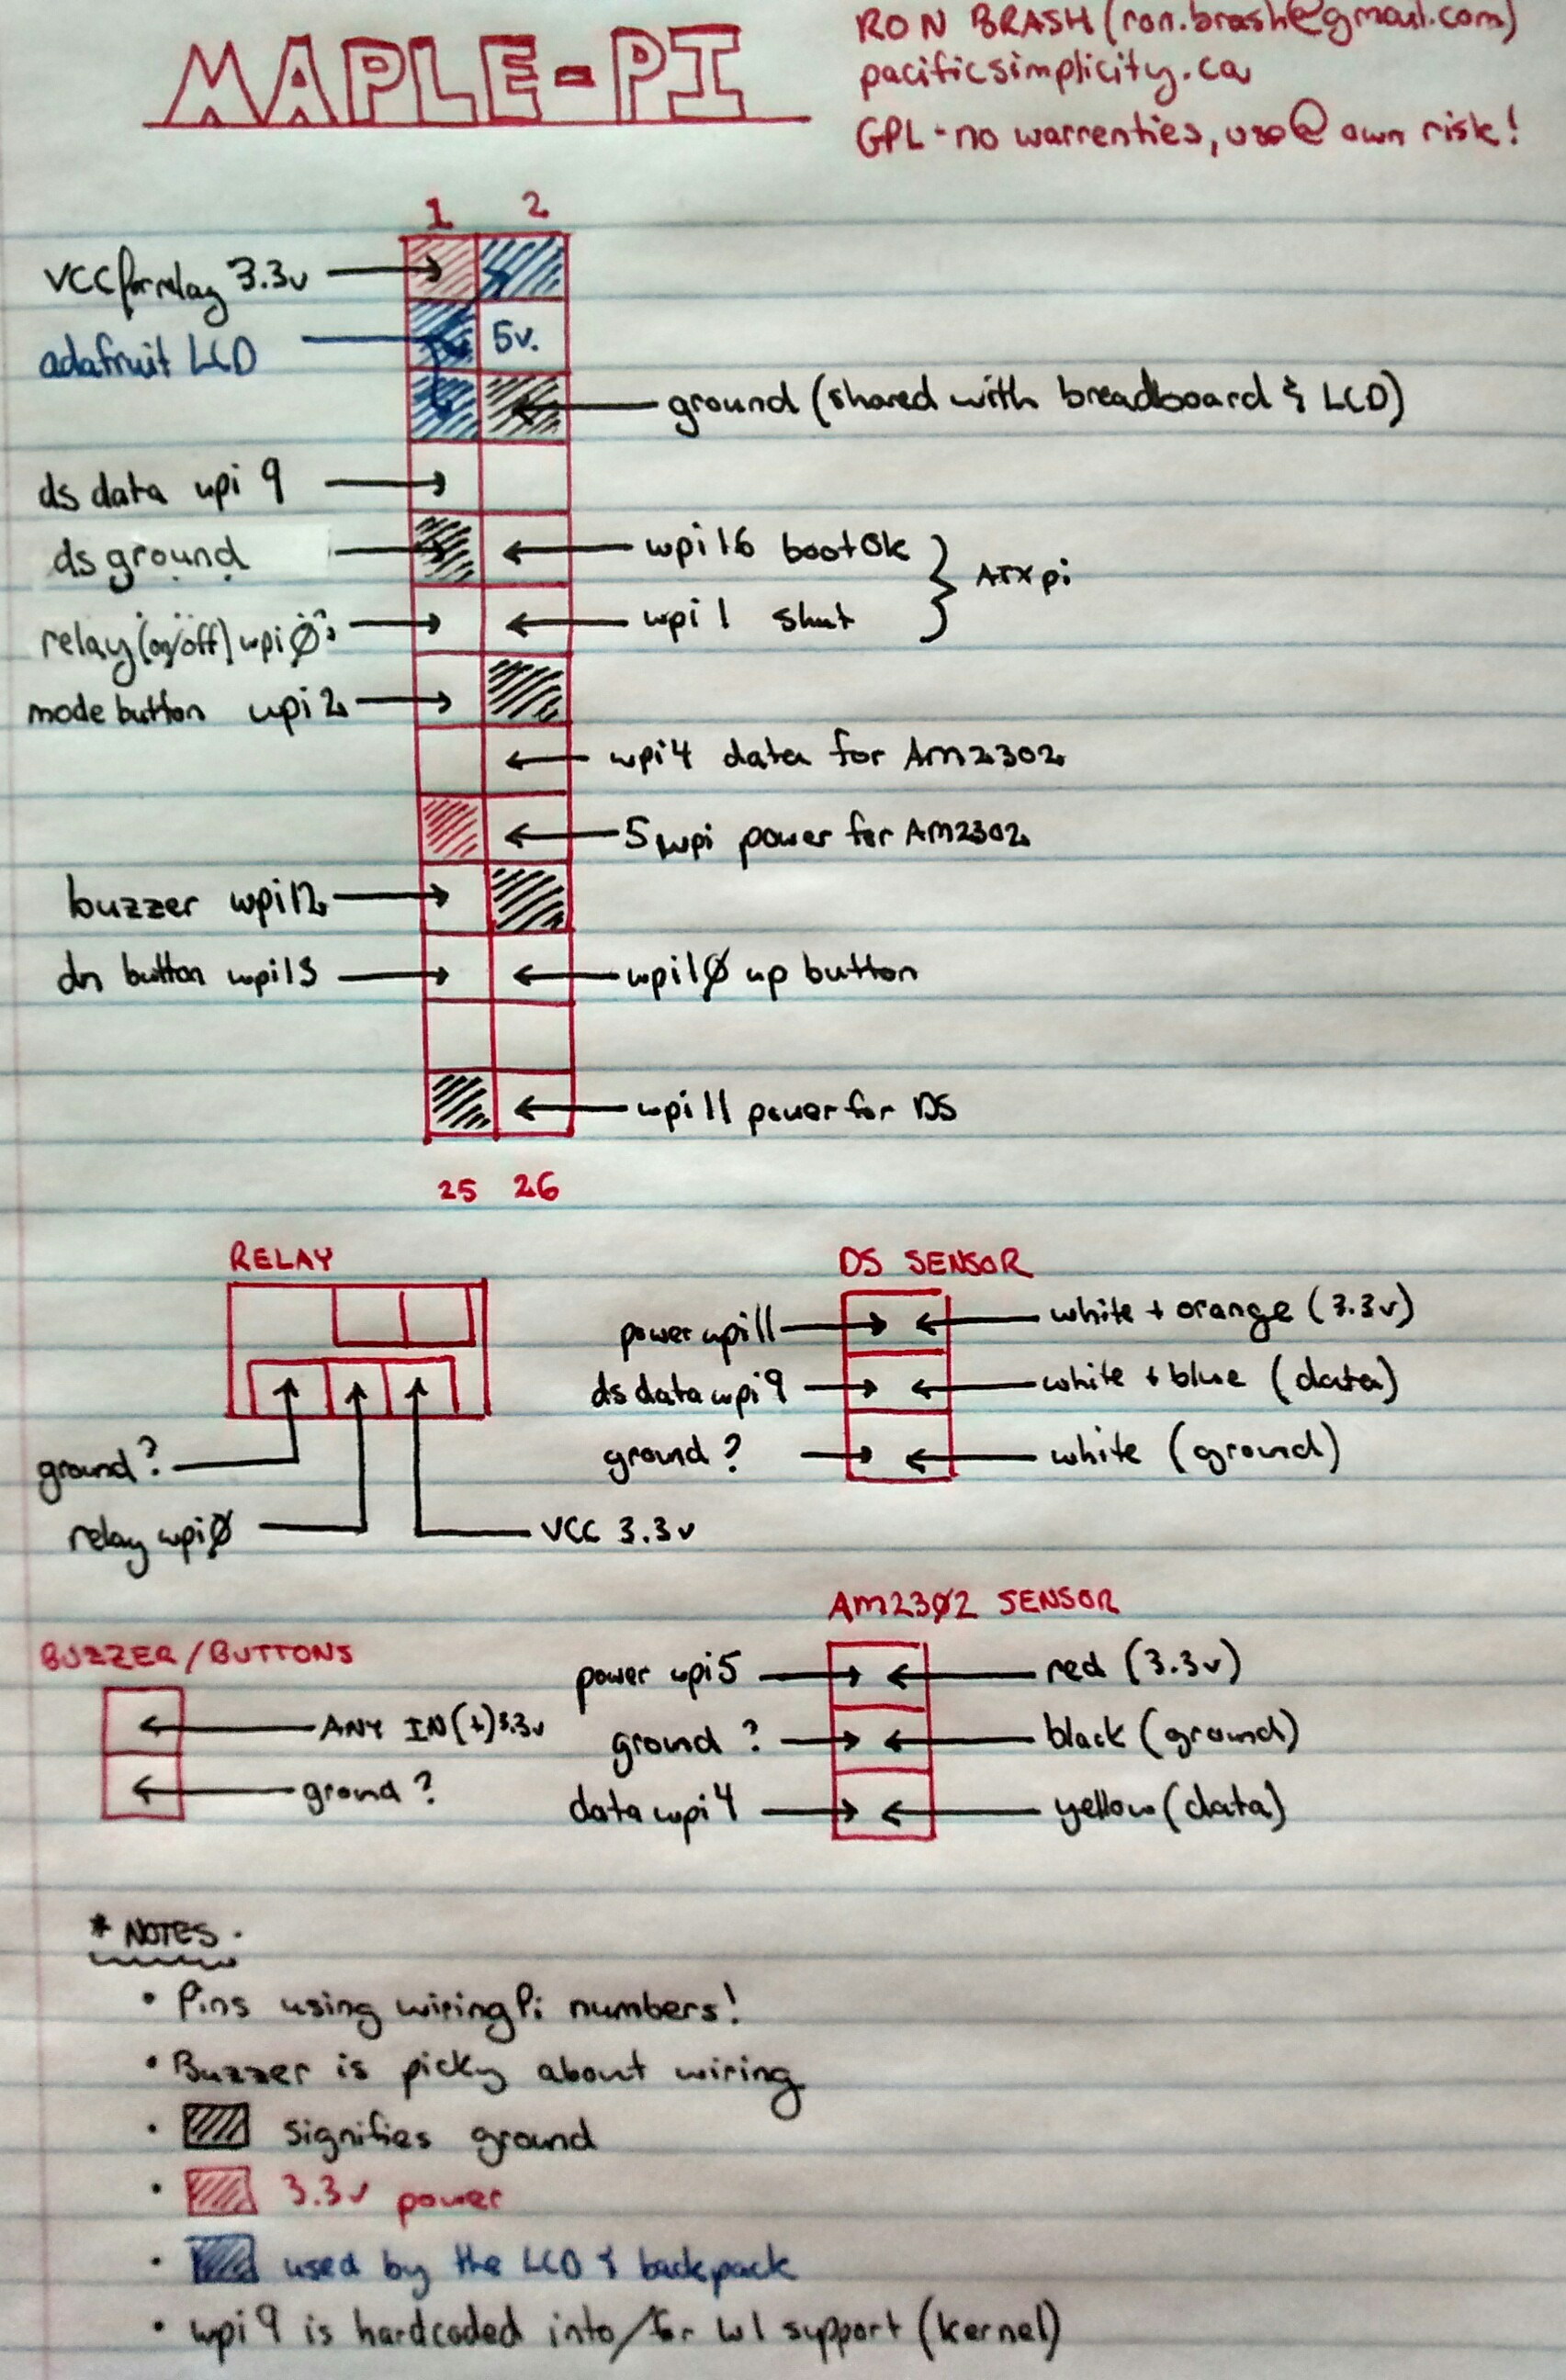 MAPLE-PI
RON BRASH (ron.brash@gmail.com)
pacificsimplicity.ca
GPL - no warrenties, use @ own risk!
1 2
VCC for relay 3.3v
adafruit LCD
5v.
ground (shared with breadboard & LCD)
ds data wpi 9
ds ground
wpi 16 boot Ok
ATXpi
relay (on/off) wpi Ø
wpi 1 shut
mode button wpi 2
wpi 4 data for Am2302
5 wpi power for AM2302
buzzer wpi 12
dn button wpi 13
wpi 1Ø up button
wpi 11 power for DS
25 26
RELAY
ground?
relay wpi Ø
VCC 3.3v
DS SENSOR
power wpi 11
white + orange (3.3v)
ds data wpi 9
white + blue (data)
ground ?
white (ground)
BUZZER/BUTTONS
ANY IN (+) 3.3v
ground ?
Am23Ø2 SENSOR
power wpi 5
red (3.3v)
ground ?
black (ground)
data wpi 4
yellow (data)
* NOTES.
• Pins using wiringPi numbers!
• Buzzer is picky about wiring
• signifies ground
• 3.3v power
• used by the LCD & backpack
• wpi 9 is hardcoded into/for w1 support (kernel)